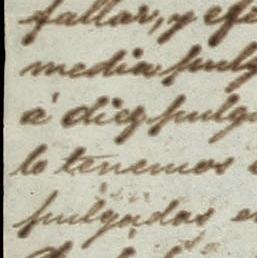 fallar, y efe
media pulg
á diez pulga
lo tenemos
pulgadas e